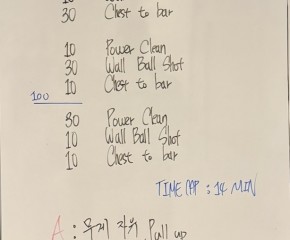 30 Chest to bar
10 Power Clean
30 Wall Ball Shot
10 Chest to bar
100
30 Power Clean
10 Wall Ball Shot
10 Chest to bar
TIME CAP : 14 MIN
A : 무게 자유 Pull up